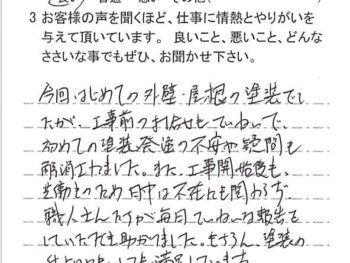 3 お客様の声を聞くほど、仕事に情熱とやりがいを
与えて頂いています。 良いこと、悪いこと、どんな
ささいな事でもぜひ、お聞かせ下さい。
今回、はじめての外壁、屋根の塗装でし
たが、工事前のお打合せもていねいで、
初めての塗装発注の不安や疑問も
解消されました。また、工事開始後も、
共働きのため日中は不在にも関わらず、
職人さんたちが毎日ていねいな報告を
していただき助かりました。もちろん、塗装の